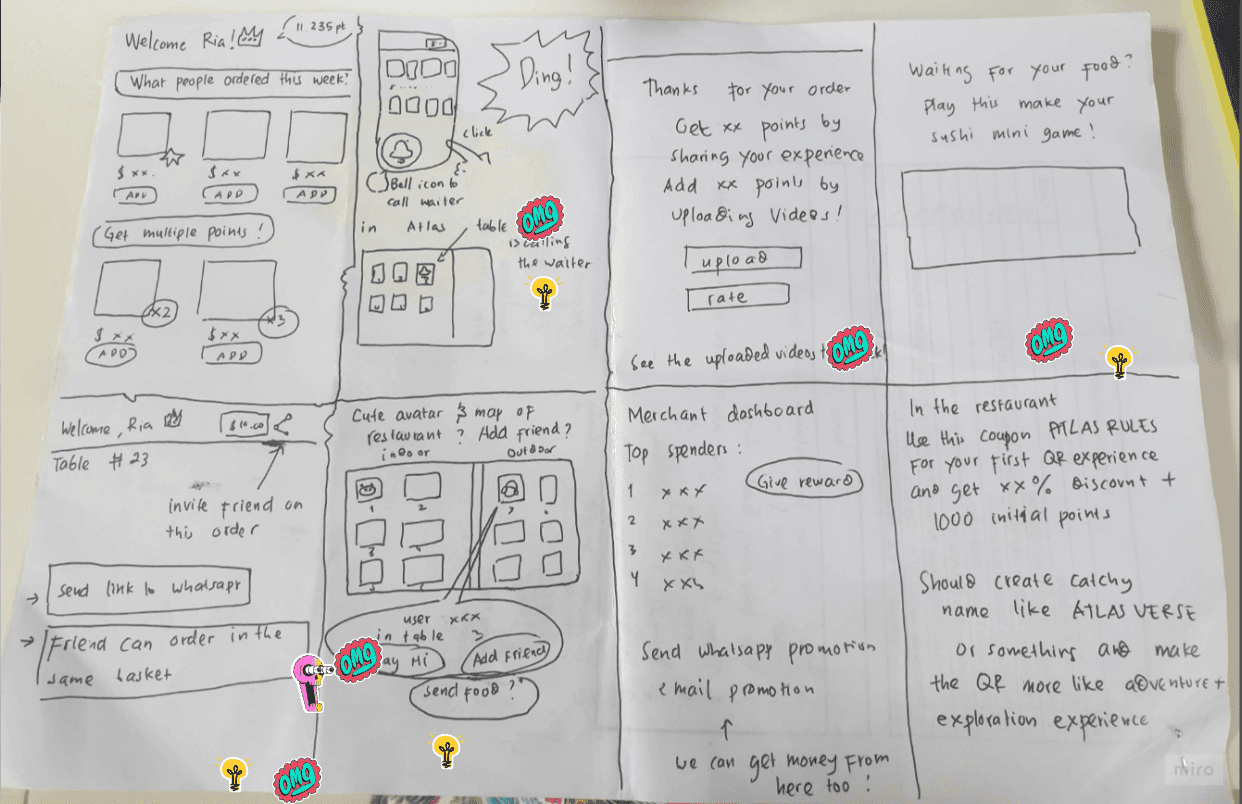 Welcome Ria!
11.235 pt
What people ordered this week?
$ xx.
$ xx
$ xx
ADD
ADD
ADD
Get multiple points!
x2
x3
$ xx
$ xx
ADD
ADD
Ding!
click
Bell icon to
call waiter
in Atlas
table
is calling
the waiter
OMG
Thanks for your order
Get xx points by
sharing your experience
Add xx points by
uploading videos!
upload
rate
See the uploaded videos
OMG
Waiting for your food?
play this make your
sushi mini game!
OMG
Welcome, Ria
$10.00
Table #23
invite friend on
this order
send link to whatsapp
Friend can order in the
same basket
OMG
Cute avatar & map of
restaurant? Add friend?
indoor
outdoor
1
2
3
user xxx
in table
Hi
Add friend
send food?
OMG
Merchant dashboard
Top spenders:
Give reward
1 xxx
2 xxx
3 xxx
4 xxx
Send whatsapp promotion
email promotion
we can get money from
here too!
In the restaurant
Use this coupon ATLAS RULES
For your first QR experience
and get xx% discount +
1000 initial points
Should create catchy
name like ATLAS VERSE
or something and make
the QR more like adventure +
exploration experience
miro